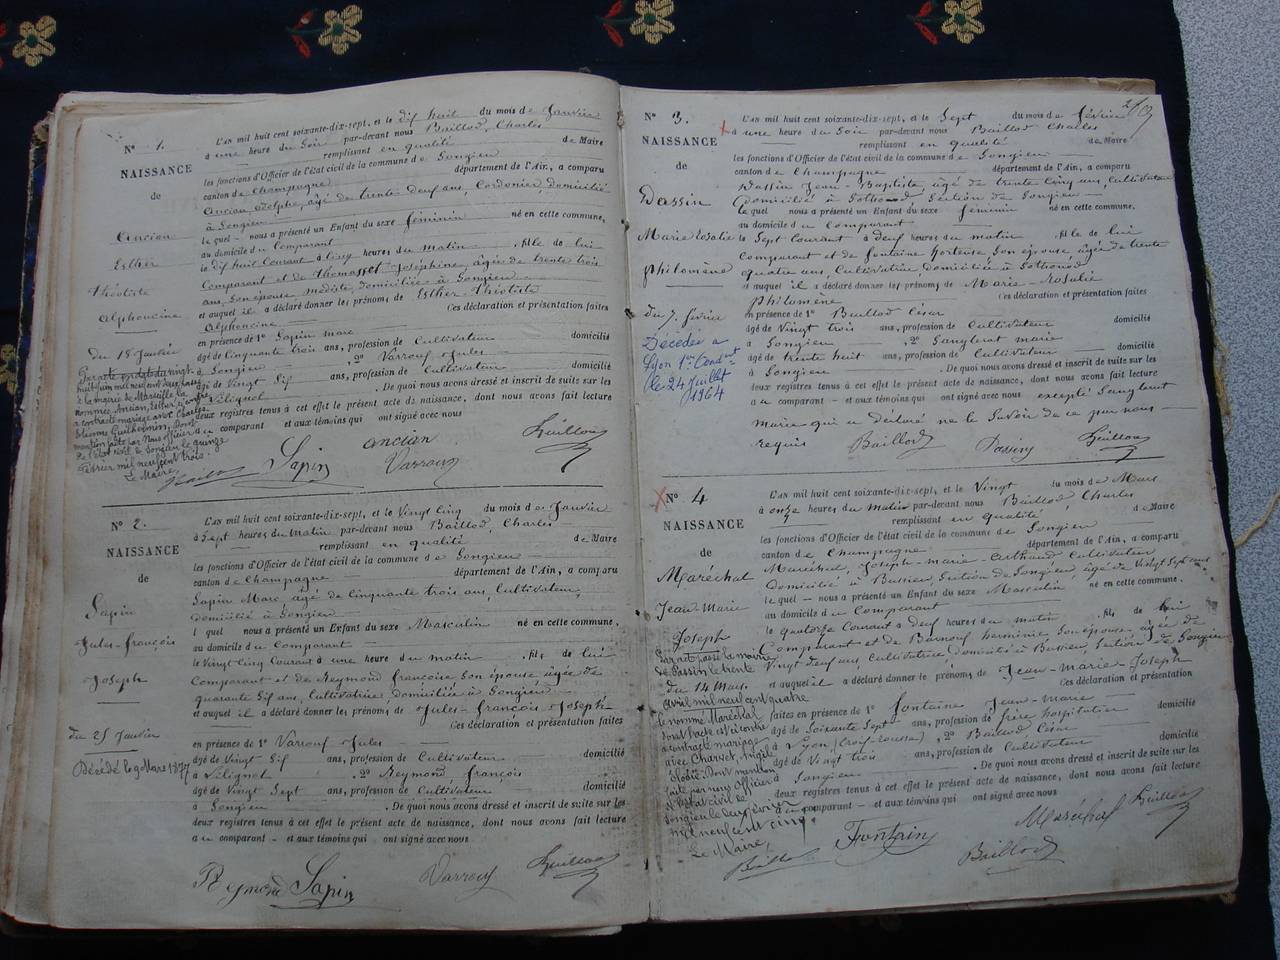 N° 1.
NAISSANCE
de
Ancian
Esther
Théotiste
Alphoncine
du 18 Janvier
L'AN mil huit cent soixante-dix-sept, et le dix huit du mois de Janvier
à une heure du Soir par-devant nous Baillod, Charles
remplissant en qualité de Maire
les fonctions d'Officier de l'état civil de la commune de Songieu
canton de Champagne département de l'Ain, a comparu
Ancian, adolphe, âgé de trente Deux ans, Cordonier, domicilié
à Songieu
le quel nous a présenté un Enfant du sexe féminin né en cette commune,
au domicile du Comparant
le dix huit Courant à Cinq heures du matin, fille de lui
Comparant et de Thomasset Joséphine âgée de trente trois
ans, Son épouse, modiste, domiciliée à Songieu
et auquel il a déclaré donner les prénoms de Esther Théotiste
Alphoncine Ces déclaration et présentation faites
en présence de 1° Sapin marc domicilié
âgé de Cinquante trois ans, profession de Cultivateur
à Songieu 2° Varrouf Jules
âgé de Vingt Six ans, profession de Cultivateur domicilié
à Vilignet. De quoi nous avons dressé et inscrit de suite sur les
deux registres tenus à cet effet le présent acte de naissance, dont nous avons fait lecture
au comparant et aux témoins qui ont signé avec nous
à la mairie de Marseille la
nommée Ancian, Esther
a contracté mariage avec Charles
Etienne Guilhermin, Dont
mention faite par Nous officier
de l'état civil de Songieu le quinze
février mil neuf cent trois.
Le Maire,
Sapin ancian Varrouf
N° 2.
NAISSANCE
de
Sapin
Jules-françois
Joseph
du 25 Janvier
Décédé le 9 Mars 1877
L'AN mil huit cent soixante-dix-sept, et le Vingt Cinq du mois de Janvier
à Sept heures du Matin par-devant nous Baillod, Charles
remplissant en qualité de Maire
les fonctions d'Officier de l'état civil de la commune de Songieu
canton de Champagne département de l'Ain, a comparu
Sapin Marc âgé de Cinquante trois ans, Cultivateur,
domicilié à Songieu
le quel nous a présenté un Enfant du sexe Masculin né en cette commune,
au domicile du Comparant
le Vingt Cinq Courant à une heure du matin, fils de lui
Comparant et de Reymond françoise Son épouse âgée de
quarante Six ans, Cultivatrice domiciliée à Songieu
et auquel il a déclaré donner les prénoms de Jules-françois Joseph
Ces déclaration et présentation faites
en présence de 1° Varrouf Jules
âgé de Vingt Six ans, profession de Cultivateur domicilié
à Vilignet. 2° Reymond, françois
âgé de Vingt Sept ans, profession de Cultivateur domicilié
à Songieu. De quoi nous avons dressé et inscrit de suite sur les
deux registres tenus à cet effet le présent acte de naissance, dont nous avons fait lecture
au comparant et aux témoins qui ont signé avec nous
Reymond Sapin Varrouf
N° 3.
NAISSANCE
de
Dassin
Marie Rosalie
Philomène
du 7. février
Décédée à
Lyon 1er
le 24 Juillet
1964
L'AN mil huit cent soixante-dix-sept, et le Sept du mois de février
à une heure du Soir par-devant nous Baillod Charles
remplissant en qualité de Maire
les fonctions d'Officier de l'état civil de la commune de Songieu
canton de Champagne département de l'Ain, a comparu
Dassin Jean-Baptiste, âgé de trente Cinq ans, Cultivateur
domicilié à Sothonod Section de Songieu
le quel nous a présenté un Enfant du sexe féminin né en cette commune.
au domicile du Comparant
le Sept Courant à deux heures du matin, fille de lui
Comparant et de fontaine hortense, Son épouse, âgée de trente
quatre ans, Cultivatrice, domiciliée à Sothonod
et auquel il a déclaré donner les prénoms de Marie-Rosalie
Philomène Ces déclaration et présentation faites
en présence de 1° Baillod César
âgé de Vingt trois ans, profession de Cultivateur domicilié
à Songieu, 2° Sauglerat marie
âgé de trente huit ans, profession de Cultivateur domicilié
à Songieu. De quoi nous avons dressé et inscrit de suite sur les
deux registres tenus à cet effet le présent acte de naissance, dont nous avons fait lecture
au comparant et aux témoins qui ont signé avec nous excepté
Marie qui a déclaré ne le Savoir de ce par nous
requis Baillod Dassin
N° 4
NAISSANCE
de
Maréchal
Jean-Marie
Joseph
du 14 Mars.
L'AN mil huit cent soixante-dix-sept, et le Vingt du mois de Mars
à onze heures du Matin par-devant nous Baillod, Charles
remplissant en qualité de Maire
les fonctions d'Officier de l'état civil de la commune de Songieu
canton de Champagne département de l'Ain, a comparu
Maréchal, Joseph-marie-Anthaud Cultivateur
domicilié à Bassieu, Section de Songieu, âgé de Vingt Sept ans
le quel nous a présenté un Enfant du sexe Masculin né en cette commune.
au domicile du Comparant
le quatorze Courant à deux heures du matin, fils de lui
Comparant et de Barnouf herminie, Son épouse, âgée de
Vingt deux ans, Cultivatrice, domiciliée à Bassieu, Section de Songieu
et auquel il a déclaré donner le prénoms de Jean-Marie-Joseph
Ces déclaration et présentation
faites en présence de 1° fontaine Jean-marie
âgé de Soixante Sept ans, profession de frère hospitalier domicilié
à Lyon (Croix-rousse) 2° Baillod César
âgé de Vingt trois ans, profession de Cultivateur domicilié
à Songieu. De quoi nous avons dressé et inscrit de suite sur les
deux registres tenus à cet effet le présent acte de naissance, dont nous avons fait lecture
au comparant et aux témoins qui ont signé avec nous
avril mil neuf cent quatre
le nommé Maréchal
dont l'acte est ci contre
a contracté mariage
avec Charvet,
Dont mention
faite par nous officier
de l'état civil de
Songieu
mil neuf cent cinq.
Le Maire,
Fontain Baillod Maréchal